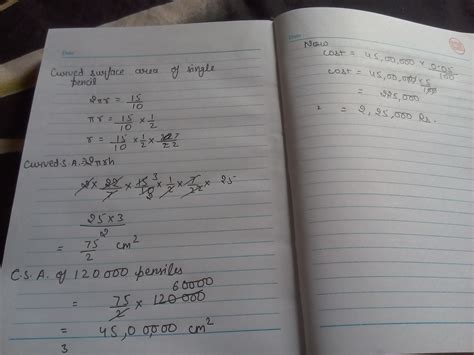 Date
Curved surface area of single
pencil
2πr = 15/10
πr = 15/10 × 1/2
r = 15/10 × 1/2 × 7/22
Curved S.A. 2πrh
2 × 22/7 × 15/10 × 1/2 × 7/22 × 25
3
2
25 × 3/2
= 75/2 cm²
C.S.A. of 120000 pensiles
60000
= 75/2 × 120000
= 45,00,000 cm²
3
Date
Now
cost = 45,00,000 × 0.05
cost = 45,00,000 × 5/100
= 225,000
= 2,25,000 Rs.